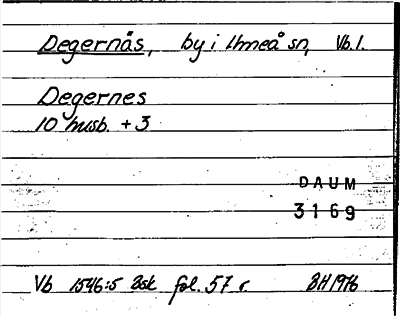 Degernäs, by i Umeå sn, Vb. l.
Degernes
10 husb. + 3
DAUM
3169
Vb 1546:5 Bsk fol. 57 r. BH 1976